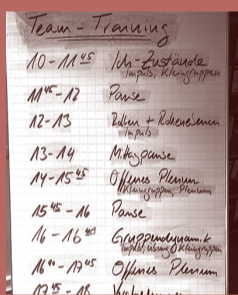 Team-Training
10-11⁴⁵ Ich-Zustände
Impuls, Kleingruppen
11⁴⁵-12 Pause
12-13 Rollen +
Impuls
13-14 Mittagspause
14-15⁴⁵ Offenes Plenum
Kleingruppen, Plenum
15⁴⁵-16 Pause
16-16⁴⁰ Gruppendynamik
Impuls, Kleingruppen
16⁴⁰-17⁴⁵ Offenes Plenum
17⁴⁵-18